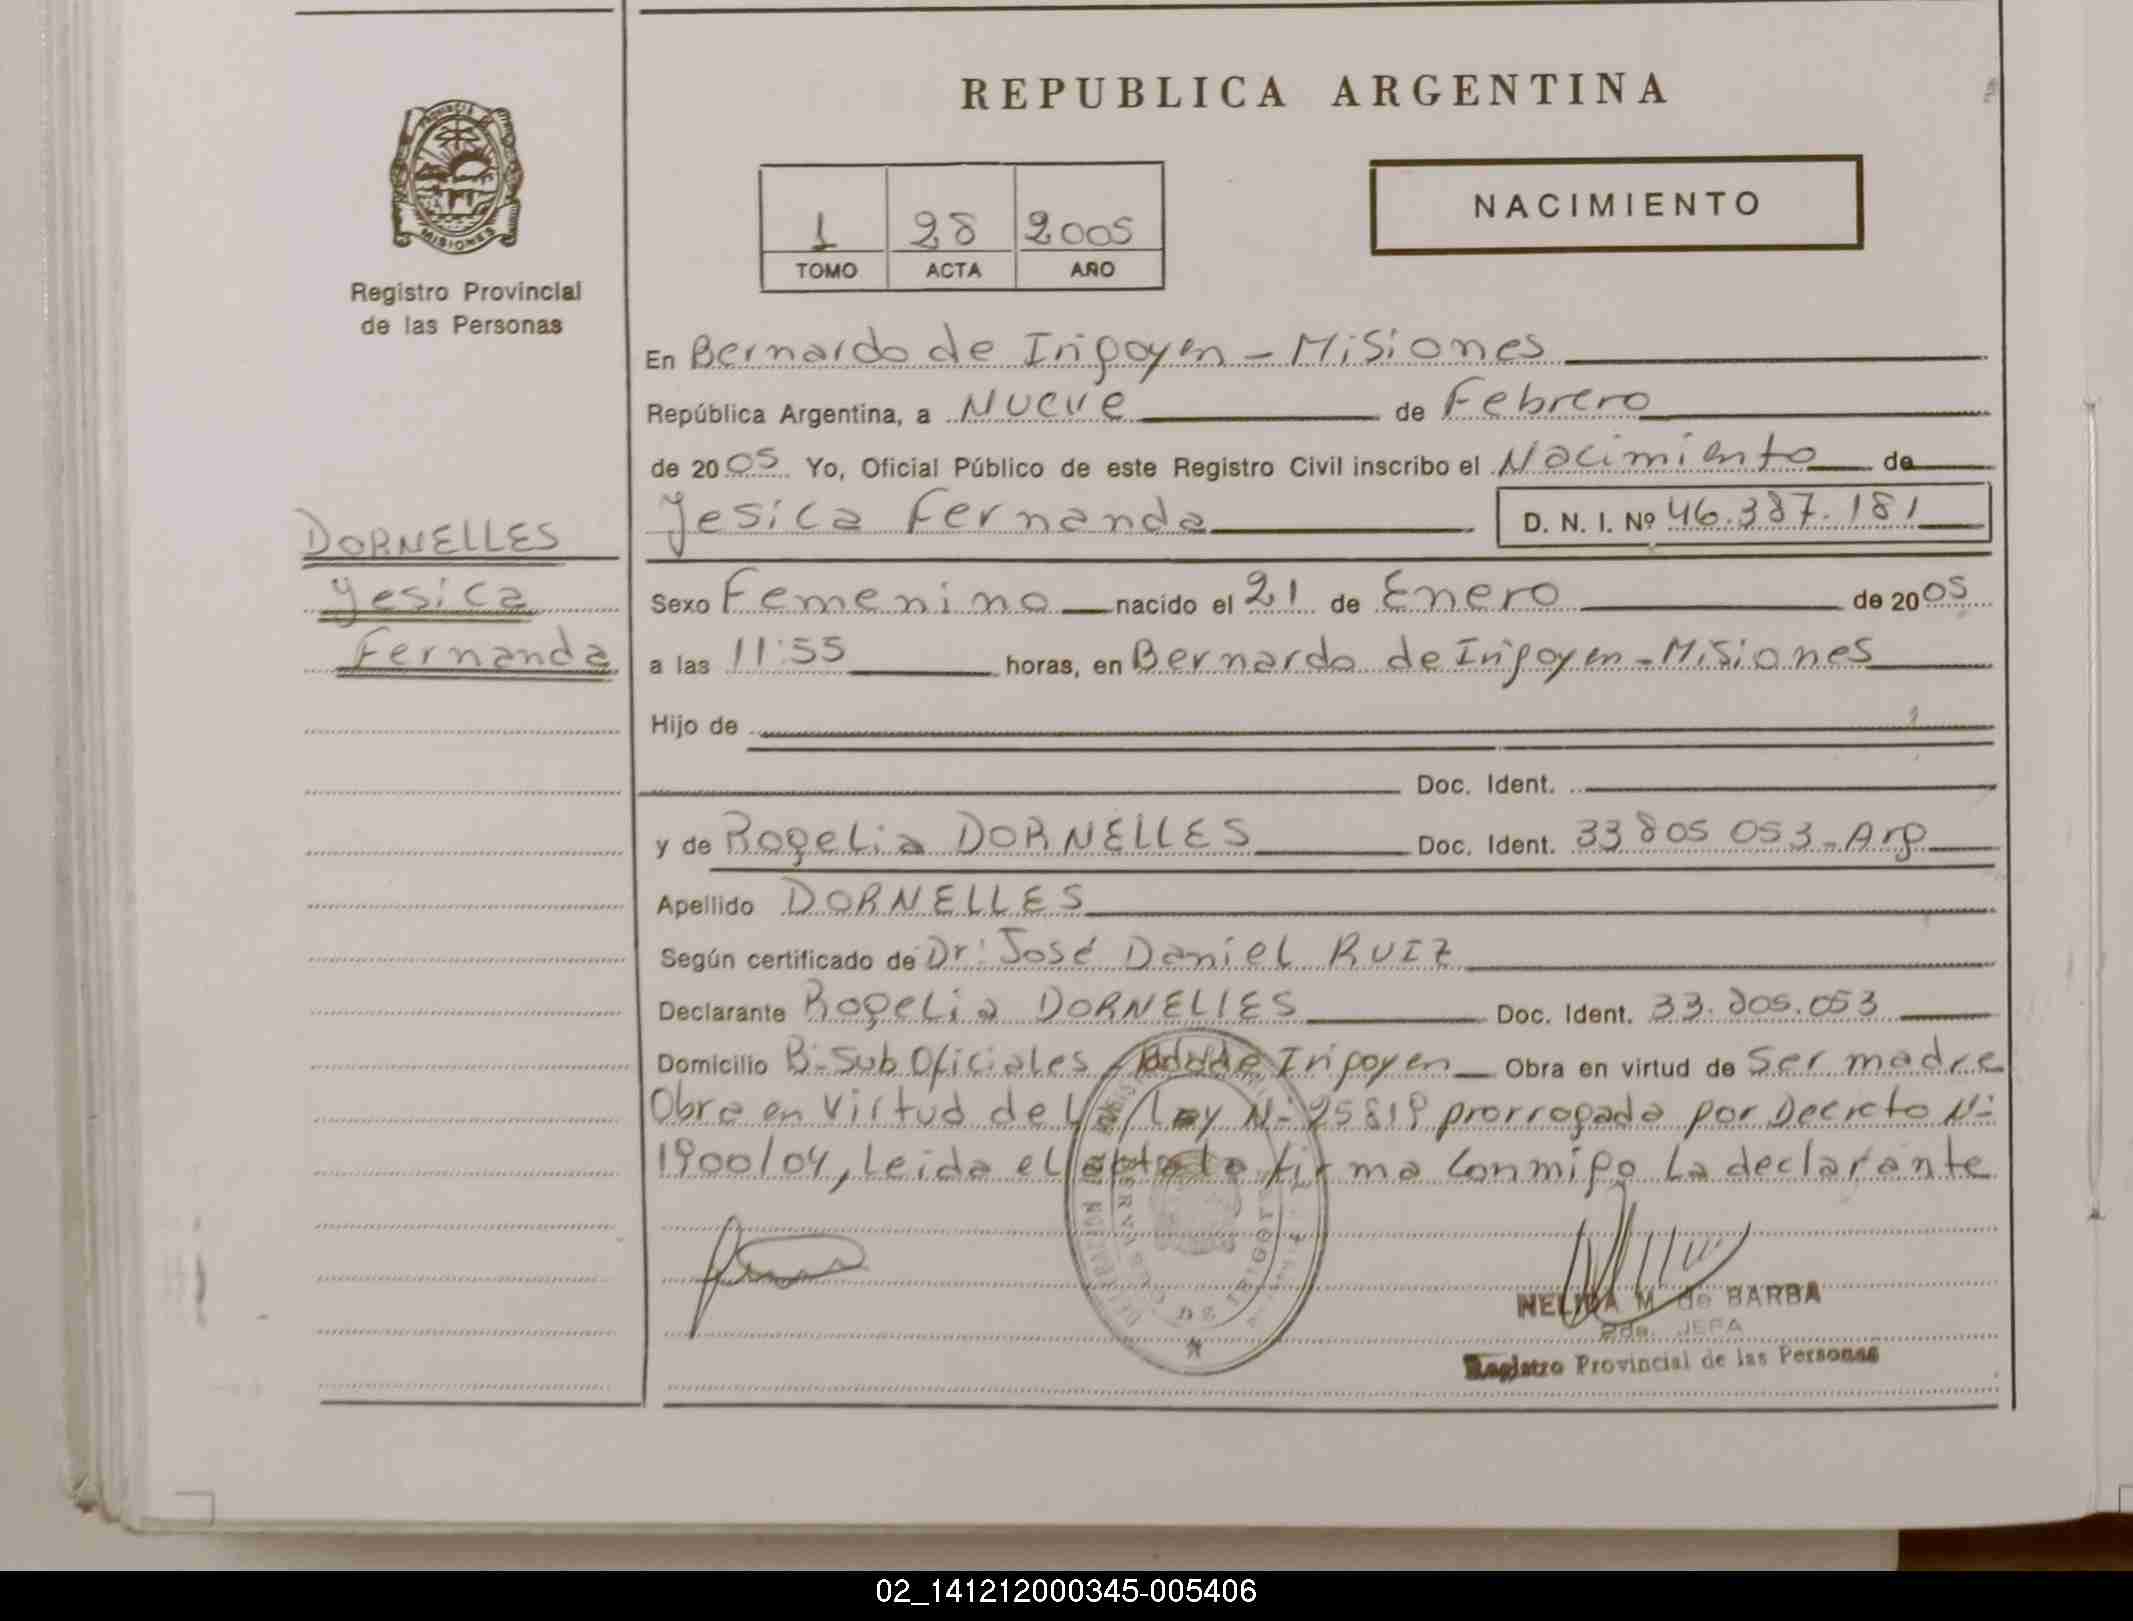 REPUBLICA ARGENTINA
NACIMIENTO
1 28 2005
TOMO ACTA AÑO
MISIONES
Registro Provincial
de las Personas
En Bernardo de Irigoyen - Misiones
República Argentina, a Nueve de Febrero
de 2005 Yo, Oficial Público de este Registro Civil inscribo el Nacimiento de
Yesica Fernanda D. N. I. Nº 46.387.181
DORNELLES
Yesica
Fernanda
Sexo Femenino nacido el 21 de Enero de 2005
a las 11:55 horas, en Bernardo de Irigoyen - Misiones
Hijo de
Doc. Ident.
y de Rogelia DORNELLES Doc. Ident. 33 805 053 - Arg
Apellido DORNELLES
Según certificado de Dr: José Daniel RUIZ
Declarante Rogelia DORNELLES Doc. Ident. 33.805.053
Domicilio B: Sub Oficiales Irigoyen Obra en virtud de Ser madre
Obra en Virtud de Ley N: 25819 prorrogada por Decreto N:
1900/04, Leida el acta la firma conmigo La declarante
NELIDA M. de BARBA
2da. JEFA
Registro Provincial de las Personas
02_141212000345-005406